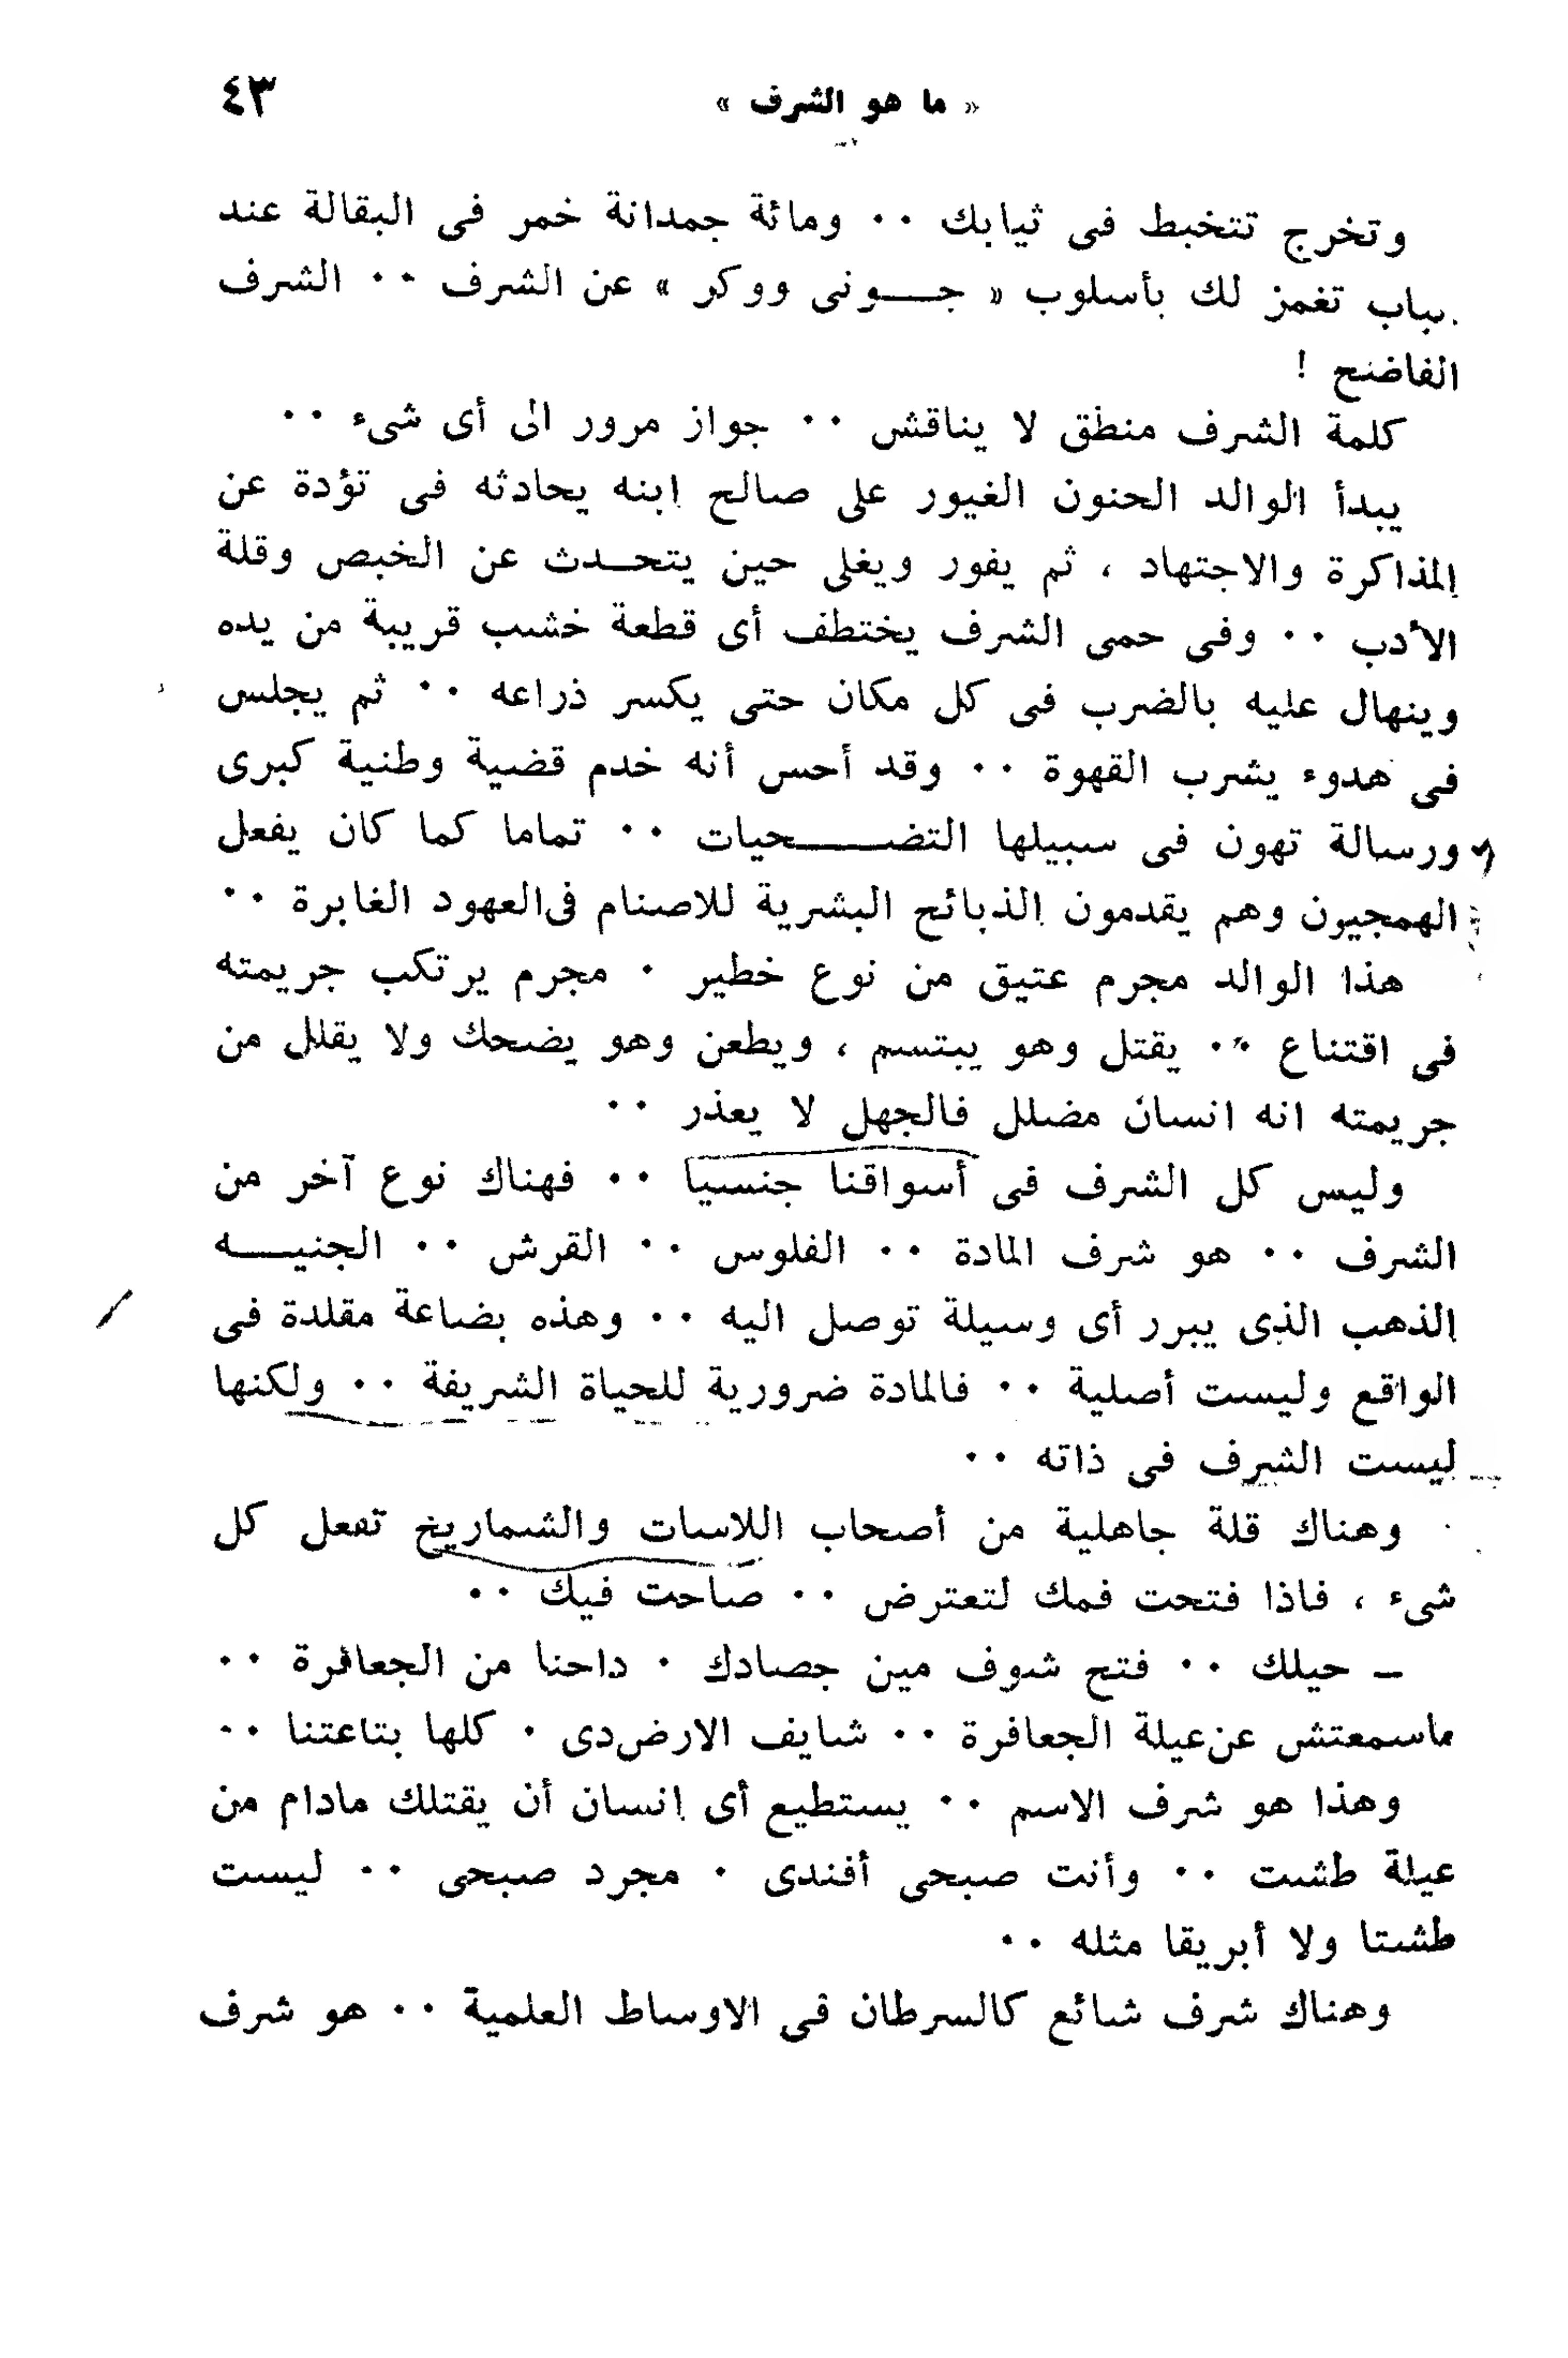 « ما هو الشرف » ٤٣
وتخرج تتخبط فى ثيابك ٠٠ ومائة جمدانة خمر فى البقالة عند
باب تغمز لك بأسلوب « جـــونى ووكر » عن الشرف ٠٠ الشرف
الفاضح !
كلمة الشرف منطق لا يناقش ٠٠ جواز مرور الى أى شىء ٠٠
يبدأ الوالد الحنون الغيور على صالح ابنه يحادثه فى تؤدة عن
المذاكرة والاجتهاد ، ثم يفور ويغلى حين يتحـدث عن الخبص وقلة
الأدب ٠٠ وفى حمى الشرف يختطف أى قطعة خشب قريبة من يده
وينهال عليه بالضرب فى كل مكان حتى يكسر ذراعه ٠٠ ثم يجلس
فى هدوء يشرب القهوة ٠٠ وقد أحس أنه خدم قضية وطنية كبرى
ورسالة تهون فى سبيلها التضـــــحيات ٠٠ تماما كما كان يفعل
الهمجيون وهم يقدمون الذبائح البشرية للاصنام فى العهود الغابرة ٠٠
هذا الوالد مجرم عتيق من نوع خطير ٠ مجرم يرتكب جريمته
فى اقتناع ٠٠ يقتل وهو يبتسم ، ويطعن وهو يضحك ولا يقلل من
جريمته انه انسان مضلل فالجهل لا يعذر ٠٠
وليس كل الشرف فى أسواقنا جنسيا ٠٠ فهناك نوع آخر من
الشرف ٠٠ هو شرف المادة ٠٠ الفلوس ٠٠ القرش ٠٠ الجنيـــه
الذهب الذى يبرر أى وسيلة توصل اليه ٠٠ وهذه بضاعة مقلدة فى
الواقع وليست أصلية ٠٠ فالمادة ضرورية للحياة الشريفة ٠٠ ولكنها
ليست الشرف فى ذاته ٠٠
وهناك قلة جاهلية من أصحاب اللاسات والشماريخ تفعل كل
شىء ، فاذا فتحت فمك لتعترض ٠٠ صاحت فيك ٠٠
– حيلك ٠٠ فتح شوف مين جصادك ٠ داحنا من الجعافرة ٠٠
ماسمعتش عن عيلة الجعافرة ٠٠ شايف الارض دى ٠ كلها بتاعتنا ٠٠
وهذا هو شرف الاسم ٠٠ يستطيع أى إنسان أن يقتلك مادام من
عيلة طشت ٠٠ وأنت صبحى أفندى ٠ مجرد صبحى ٠٠ ليست
طشتا ولا أبريقا مثله ٠٠
وهناك شرف شائع كالسرطان فى الاوساط العلمية ٠٠ هو شرف